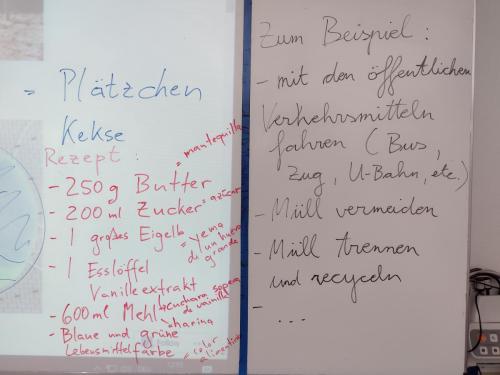 = Plätzchen
Kekse
Rezept :
- 250 g Butter = mantequilla
- 200 ml Zucker = azúcar
- 1 großes Eigelb = yema
de un huevo
grande
- 1 Esslöffel
Vanilleextrakt
cuchara sopera
de vainilla
- 600 ml Mehl
harina
- Blaue und grüne
Lebensmittelfarbe = color
Zum Beispiel :
- mit den öffentlichen
Verkehrsmitteln
fahren ( Bus,
Zug, U-Bahn, etc.)
- Müll vermeiden
- Müll trennen
und recyceln
- ...